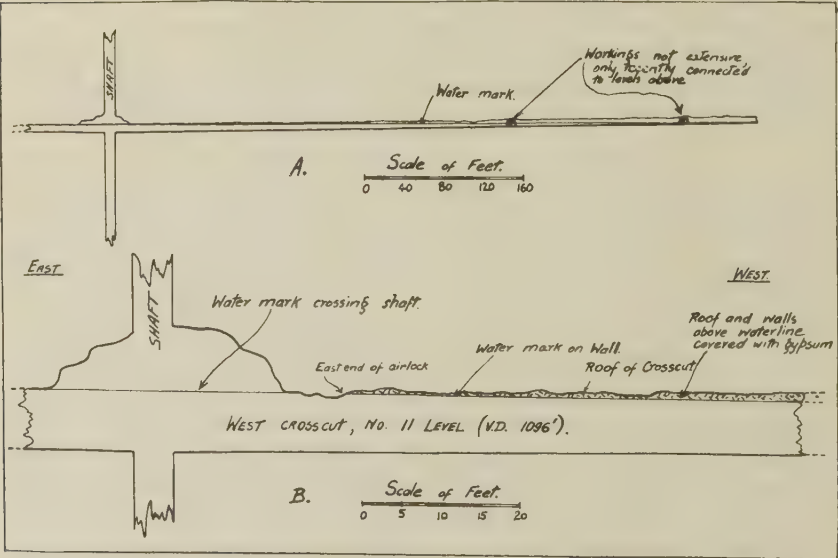 SHAFT
Water mark.
Workings not extensive
only recently connected
to levels above
A.
Scale of Feet.
0 40 80 120 160
EAST
WEST.
SHAFT
Water mark crossing shaft.
East end of airlock
Water mark on Wall.
Roof of Crosscut
Roof and walls
above waterline
covered with gypsum
WEST CROSSCUT, NO. 11 LEVEL (V.D. 1096').
B.
Scale of Feet.
0 5 10 15 20